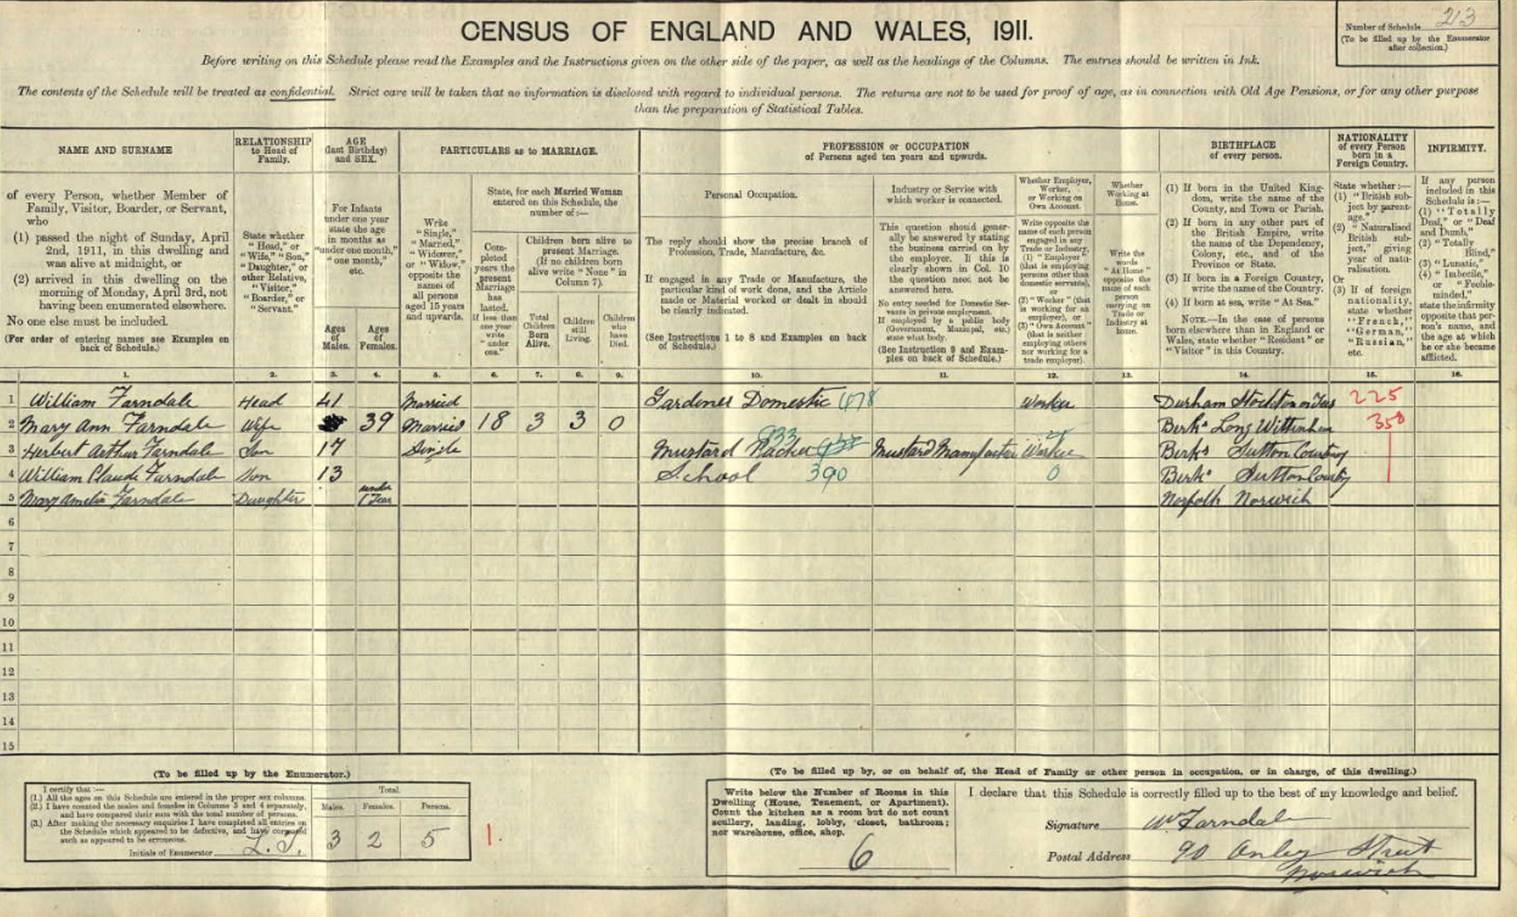 CENSUS OF ENGLAND AND WALES, 1911.
Number of Schedule 213
(To be filled up by the Enumerator
after collection.)
Before writing on this Schedule please read the Examples and the Instructions given on the other side of the paper, as well as the headings of the Columns. The entries should be written in Ink.
The contents of the Schedule will be treated as confidential. Strict care will be taken that no information is disclosed with regard to individual persons. The returns are not to be used for proof of age, as in connection with Old Age Pensions, or for any other purpose
than the preparation of Statistical Tables.
NAME AND SURNAME
of every Person, whether Member of
Family, Visitor, Boarder, or Servant,
who
(1) passed the night of Sunday, April
2nd, 1911, in this dwelling and
was alive at midnight, or
(2) arrived in this dwelling on the
morning of Monday, April 3rd, not
having been enumerated elsewhere.
No one else must be included.
(For order of entering names see Examples on
back of Schedule.)
RELATIONSHIP
to Head of
Family.
State whether
"Head," or
"Wife," "Son,"
"Daughter," or
other Relative,
"Visitor,"
"Boarder," or
"Servant."
AGE
(last Birthday)
and SEX.
For Infants
under one year
state the age
in months as
"under one month,"
"one month,"
etc.
Ages
of
Males.
Ages
of
Females.
PARTICULARS as to MARRIAGE.
Write
"Single,"
"Married,"
"Widower,"
or "Widow,"
opposite the
names of
all persons
aged 15 years
and upwards.
State, for each Married Woman
entered on this Schedule, the
number of:—
Com-
pleted
years the
present
Marriage
has
lasted.
If less than
one year
write
"under
one."
Children born alive to
present Marriage.
(If no children born
alive write "None" in
Column 7).
Total
Children
Born
Alive.
Children
still
Living.
Children
who
have
Died.
PROFESSION or OCCUPATION
of Persons aged ten years and upwards.
Personal Occupation.
The reply should show the precise branch of
Profession, Trade, Manufacture, &c.
If engaged in any Trade or Manufacture, the
particular kind of work done, and the Article
made or Material worked or dealt in should
be clearly indicated.
(See Instructions 1 to 8 and Examples on back
of Schedule.)
Industry or Service with
which worker is connected.
This question should gener-
ally be answered by stating
the business carried on by
the employer. If this is
clearly shown in Col. 10
the question need not be
answered here.
No entry needed for Domestic Ser-
vants in private employment.
If employed by a public body
(Government, Municipal, etc.)
state what body.
(See Instruction 9 and Exam-
ples on back of Schedule.)
Whether Employer,
Worker,
or Working on
Own Account.
Write opposite the
name of each person
engaged in any
Trade or Industry,
(1) "Employer"
(that is employing
persons other than
domestic servants),
or
(2) "Worker" (that
is working for an
employer), or
(3) "Own Account"
(that is neither
employing others
nor working for a
trade employer).
Whether
Working at
Home.
Write the
words
"At Home"
opposite the
name of each
person
carrying on
Trade or
Industry at
home.
BIRTHPLACE
of every person.
(1) If born in the United King-
dom, write the name of the
County, and Town or Parish.
(2) If born in any other part of
the British Empire, write
the name of the Dependency,
Colony, etc., and of the
Province or State.
(3) If born in a Foreign Country,
write the name of the Country.
(4) If born at sea, write "At Sea."
NOTE.—In the case of persons
born elsewhere than in England or
Wales, state whether "Resident" or
"Visitor" in this Country.
NATIONALITY
of every Person
born in a
Foreign Country.
State whether:—
(1) "British sub-
ject by parent-
age."
(2) "Naturalised
British sub-
ject," giving
year of natu-
ralisation.
Or
(3) If of foreign
nationality,
state whether
"French,"
"German,"
"Russian,"
etc.
INFIRMITY.
If any person
included in this
Schedule is:—
(1) "Totally
Deaf," or "Deaf
and Dumb,"
(2) "Totally
Blind,"
(3) "Lunatic,"
(4) "Imbecile,"
or "Feeble-
minded,"
state the infirmity
opposite that per-
son's name, and
the age at which
he or she became
afflicted.
1. 2. 3. 4. 5. 6. 7. 8. 9. 10. 11. 12. 13. 14. 15. 16.
1 William Farndale Head 41 Married Gardener Domestic 078 Worker Durham Stockton on Tees 225
2 Mary Ann Farndale Wife 39 Married 18 3 3 0 Berks Long Wittenham 358
3 Herbert Arthur Farndale Son 17 Single Mustard Packer 933 Mustard Manufacturer Worker Berks Sutton Courtney
4 William Claude Farndale Son 13 School 390 0 Berks Sutton Courtney
5 Mary Amelia Farndale Daughter under 1 Year Norfolk Norwich
6
7
8
9
10
11
12
13
14
15
(To be filled up by the Enumerator.)
I certify that:—
(1.) All the ages on this Schedule are entered in the proper sex columns.
(2.) I have counted the males and females in Columns 3 and 4 separately,
and have compared their sum with the total number of persons.
(3.) After making the necessary enquiries I have completed all entries on
the Schedule which appeared to be defective, and have corrected
such as appeared to be erroneous.
Initials of Enumerator
Total.
Males. Females. Persons.
3 2 5
1.
(To be filled up by, or on behalf of, the Head of Family or other person in occupation, or in charge, of this dwelling.)
Write below the Number of Rooms in this
Dwelling (House, Tenement, or Apartment).
Count the kitchen as a room but do not count
scullery, landing, lobby, closet, bathroom;
nor warehouse, office, shop.
6
I declare that this Schedule is correctly filled up to the best of my knowledge and belief.
Signature Wm Farndale
Postal Address 90 Onley Street
Norwich